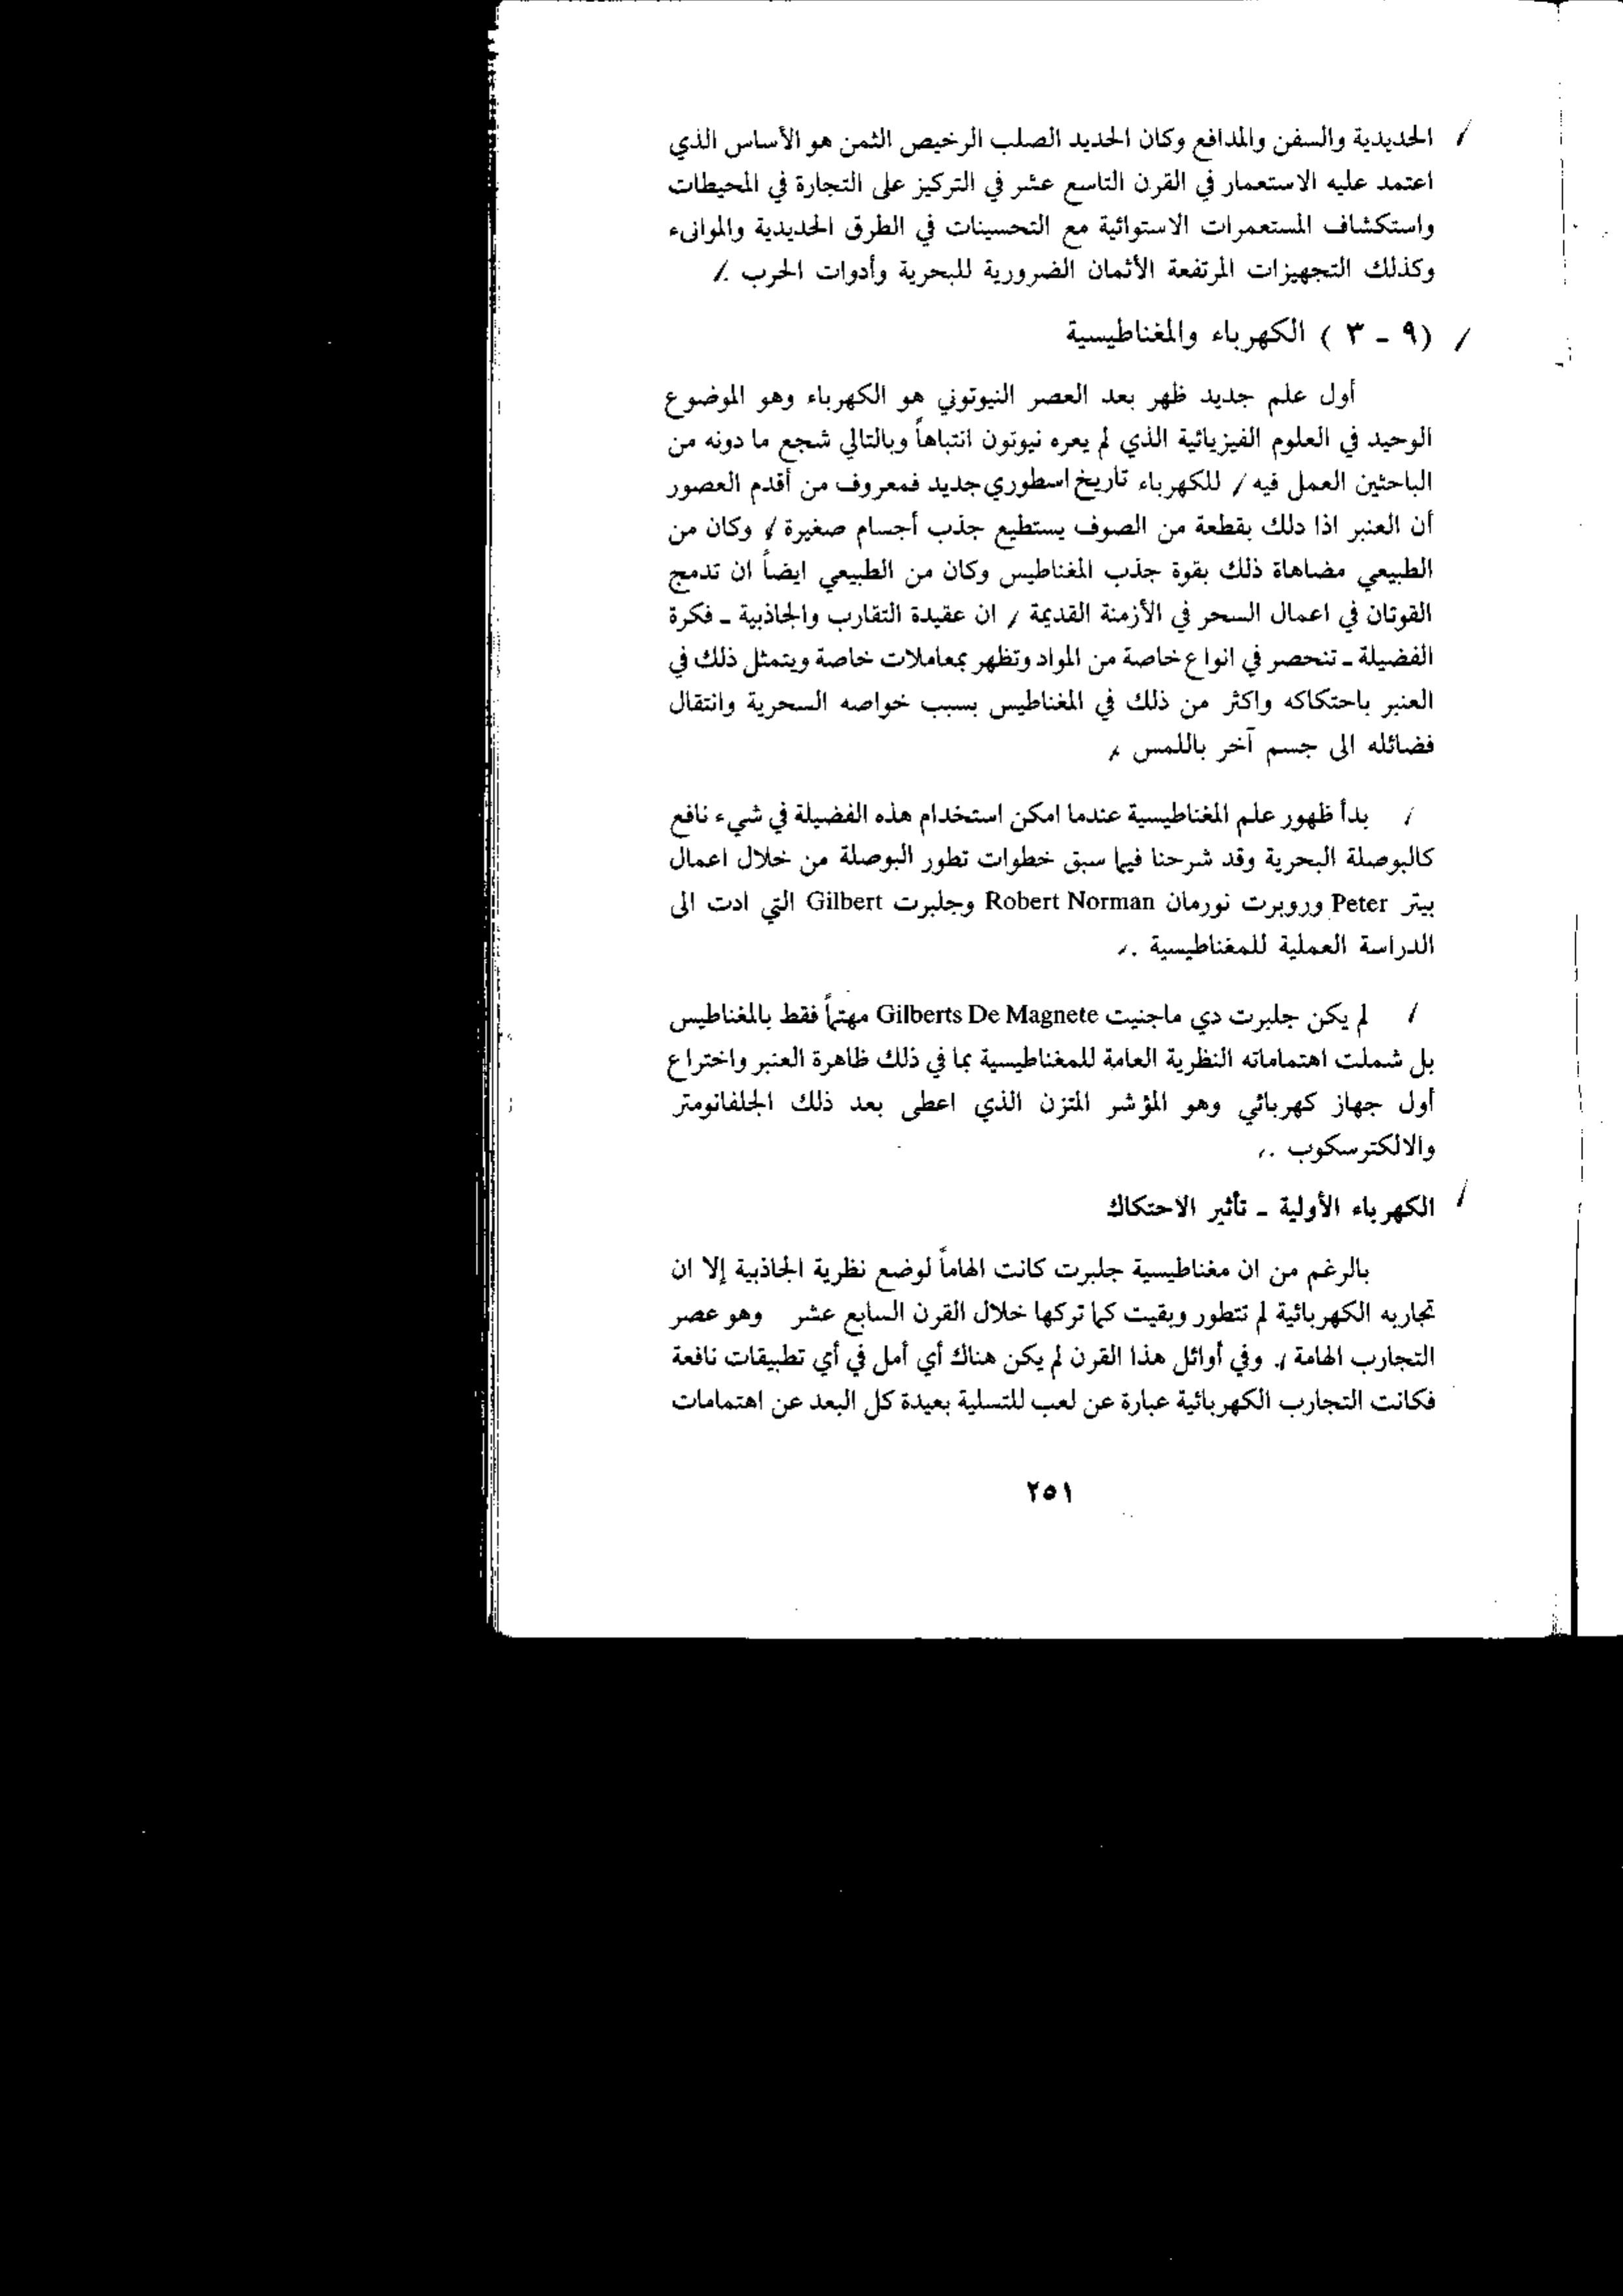 الحديدية والسفن والمدافع وكان الحديد الصلب الرخيص الثمن هو الأساس الذي
اعتمد عليه الاستعمار في القرن التاسع عشر في التركيز على التجارة في المحيطات
واستكشاف المستعمرات الاستوائية مع التحسينات في الطرق الحديدية والموانىء
وكذلك التجهيزات المرتفعة الأثمان الضرورية للبحرية وأدوات الحرب .
(٩ - ٣ ) الكهرباء والمغناطيسية
أول علم جديد ظهر بعد العصر النيوتوني هو الكهرباء وهو الموضوع
الوحيد في العلوم الفيزيائية الذي لم يعره نيوتون انتباهاً وبالتالي شجع ما دونه من
الباحثين العمل فيه / للكهرباء تاريخ اسطوري جديد فمعروف من أقدم العصور
أن العنبر اذا دلك بقطعة من الصوف يستطيع جذب أجسام صغيرة / وكان من
الطبيعي مضاهاة ذلك بقوة جذب المغناطيس وكان من الطبيعي ايضاً ان تدمج
القوتان في اعمال السحر في الأزمنة القديمة / ان عقيدة التقارب والجاذبية ـ فكرة
الفضيلة ـ تنحصر في انواع خاصة من المواد وتظهر بمعاملات خاصة ويتمثل ذلك في
العنبر باحتكاكه واكثر من ذلك في المغناطيس بسبب خواصه السحرية وانتقال
فضائله الى جسم آخر باللمس .
/ بدأ ظهور علم المغناطيسية عندما امكن استخدام هذه الفضيلة في شيء نافع
كالبوصلة البحرية وقد شرحنا فيما سبق خطوات تطور البوصلة من خلال اعمال
بيتر Peter وروبرت نورمان Robert Norman وجلبرت Gilbert التي ادت الى
الدراسة العملية للمغناطيسية .
/ لم يكن جلبرت دي ماجنيت Gilberts De Magnete مهتماً فقط بالمغناطيس
بل شملت اهتماماته النظرية العامة للمغناطيسية بما في ذلك ظاهرة العنبر واختراع
أول جهاز كهربائي وهو المؤشر المتزن الذي اعطى بعد ذلك الجلفانومتر
والالكترسكوب .
الكهرباء الأولية ـ تأثير الاحتكاك
بالرغم من ان مغناطيسية جلبرت كانت الهاماً لوضع نظرية الجاذبية إلا ان
تجاربه الكهربائية لم تتطور وبقيت كما تركها خلال القرن السابع عشر وهو عصر
التجارب الهامة . وفي أوائل هذا القرن لم يكن هناك أي أمل في أي تطبيقات نافعة
فكانت التجارب الكهربائية عبارة عن لعب للتسلية بعيدة كل البعد عن اهتمامات
٢٥١